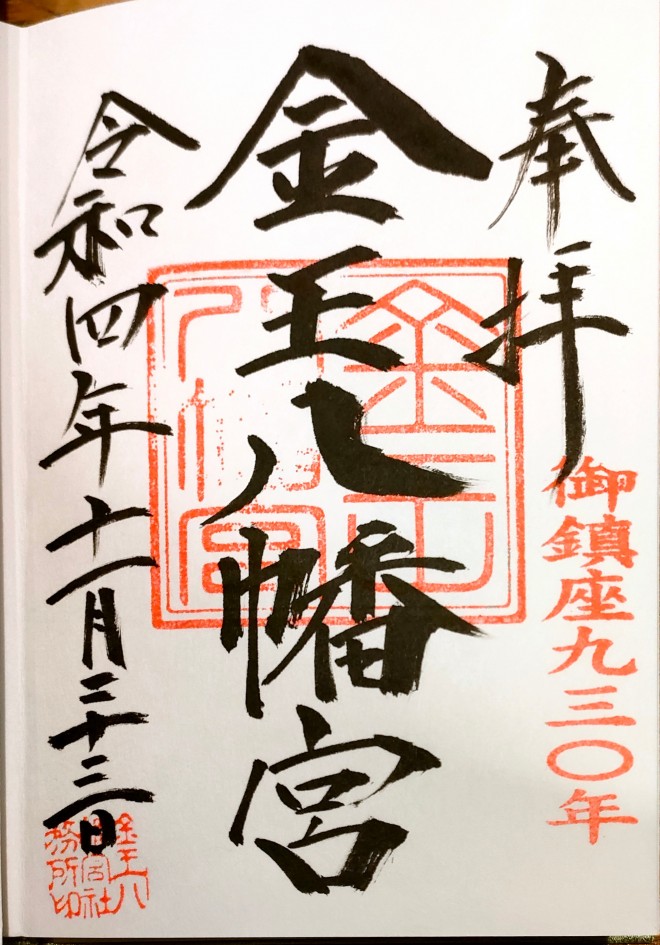 奉拝
御鎮座九三〇年
金王八幡宮
金王
八幡宮
令和四年十一月二十三日
金王八
幡宮社
務所印